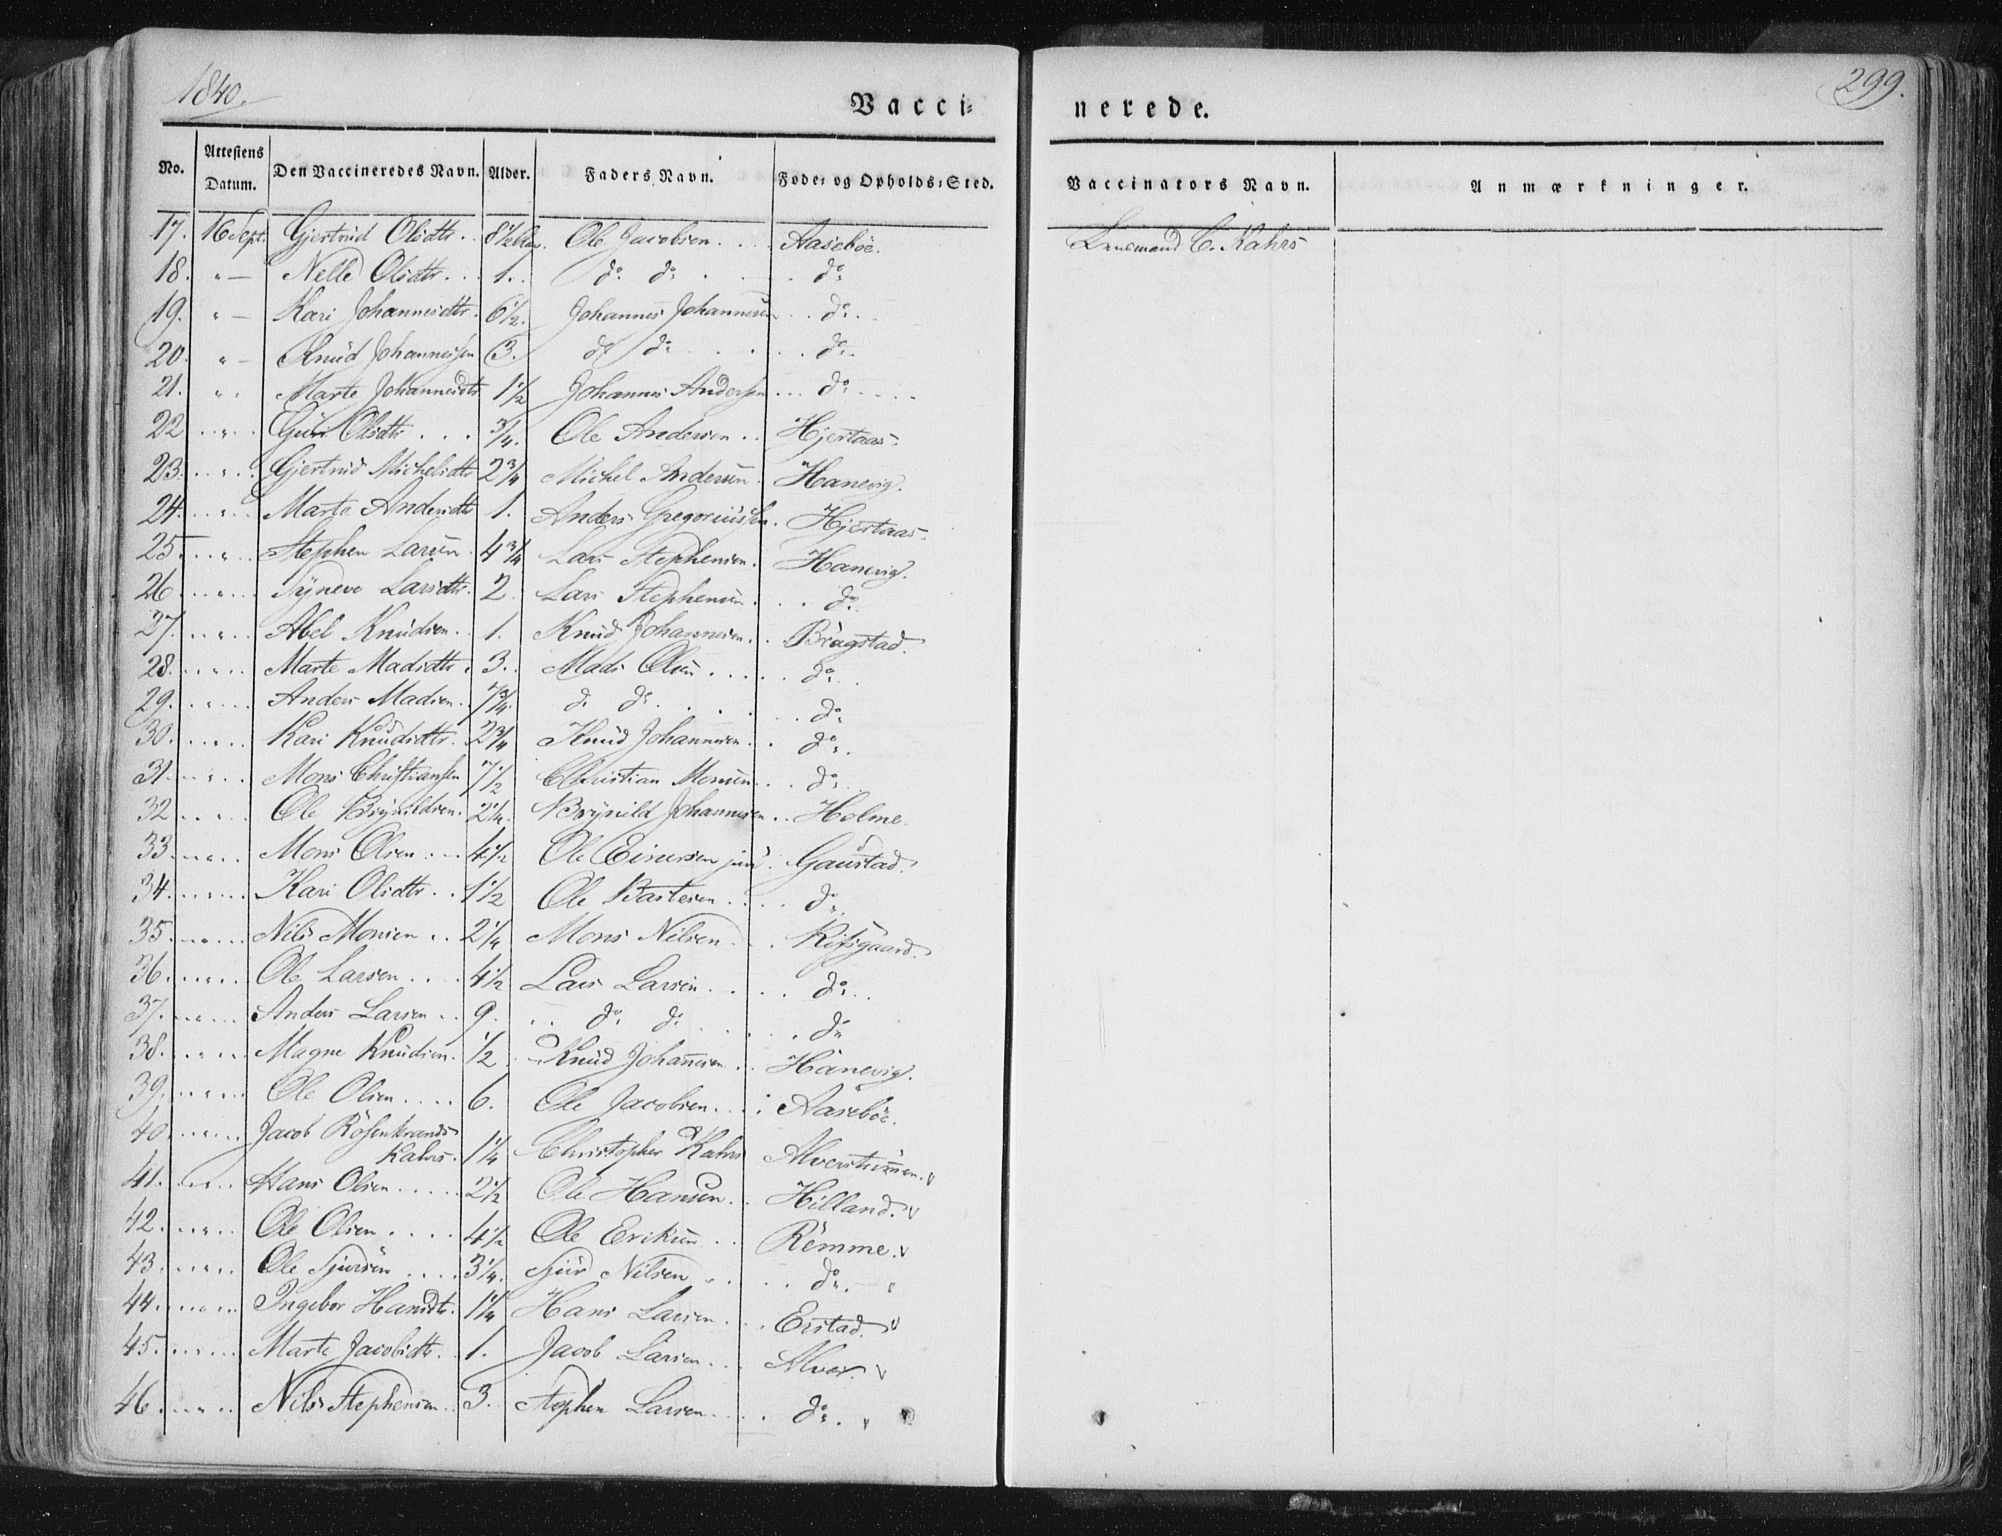 1840.
299.
Vacci=
nerede.
No. Attestens Datum. Den Vaccineredes Navn. Alder. Faders Navn. Føde= og Opholds=Sted. Vaccinators Navn. Anmærkninger.
17. 16 Sept. Gjertrud Olsdtr. 8½ Ole Jacobsen Aaseböe. Lensmand C. Kahrs
18. " — Nelle Olsdtr. 1. do do do
19. " — Kari Johannesdtr. 6½. Johannes Johannesen do
20. " — Knud Johannessen 3. do do do
21. " Marte Johannesdtr 1½ Johannes Andersen do
22 " Guri Olsdtr ¾. Ole Andersen Hjertaas.
23. " Gjertrud Michelsdtr 2¾ Michel Andersen Hanevig.
24. " Marte Andersdtr 1. Anders Gregoriussen Hjertaas.
25 " Stephen Larsen 4¾ Lars Stephensen. Hanevig.
26 " Syneve Larsdtr. 2. Lars Stephensen do
27. " Abel Knudsen 1. Knud Johannesen Brägstad.
28. " Marte Madsdtr. 3. Mads Olsen do
29. " Anders Madsen. 7¾. do do do
30. " Kari Knudsdtr. 2¾ Knud Johannesen do
31. " Mons Christiansen 7½ Christian Monsen do
32 " Ole Brynildsen. 2¼. Brynild Johannesen Holme.
33. " Mons Olsen 4½ Ole Eivensen jun Gaustad.
34. " Kari Olsdtr. 1½ Ole Bastesen do
35. " Nils Monsen 2¼ Mons Nilsen Risgaard.
36. " Ole Larsen 4½ Lars Larsen do
37. " Anders Larsen 9. do do do
38. " Magne Knudsen. ½ Knud Johannesen Hanevig.
39. " Ole Olsen 6. Ole Jacobsen Aaseböe.
40. " Jacob Rosenkrands
Kahrs. 1¼ Christopher Kahrs Alverströmmen.
41. " Hans Olsen 2½ Ole Hansen Hilland.
42. " Ole Olsen 4½ Ole Eriksen Remme.
43. " Ole Sjursen 3¼. Sjur Nilsen do
44. " Ingebor Hansdtr. 1¼ Hans Larsen Eistad.
45. " Marte Jacobsdtr. 1. Jacob Larsen Alver.
46. " Nils Stephensen 3. Stephen Larsen do